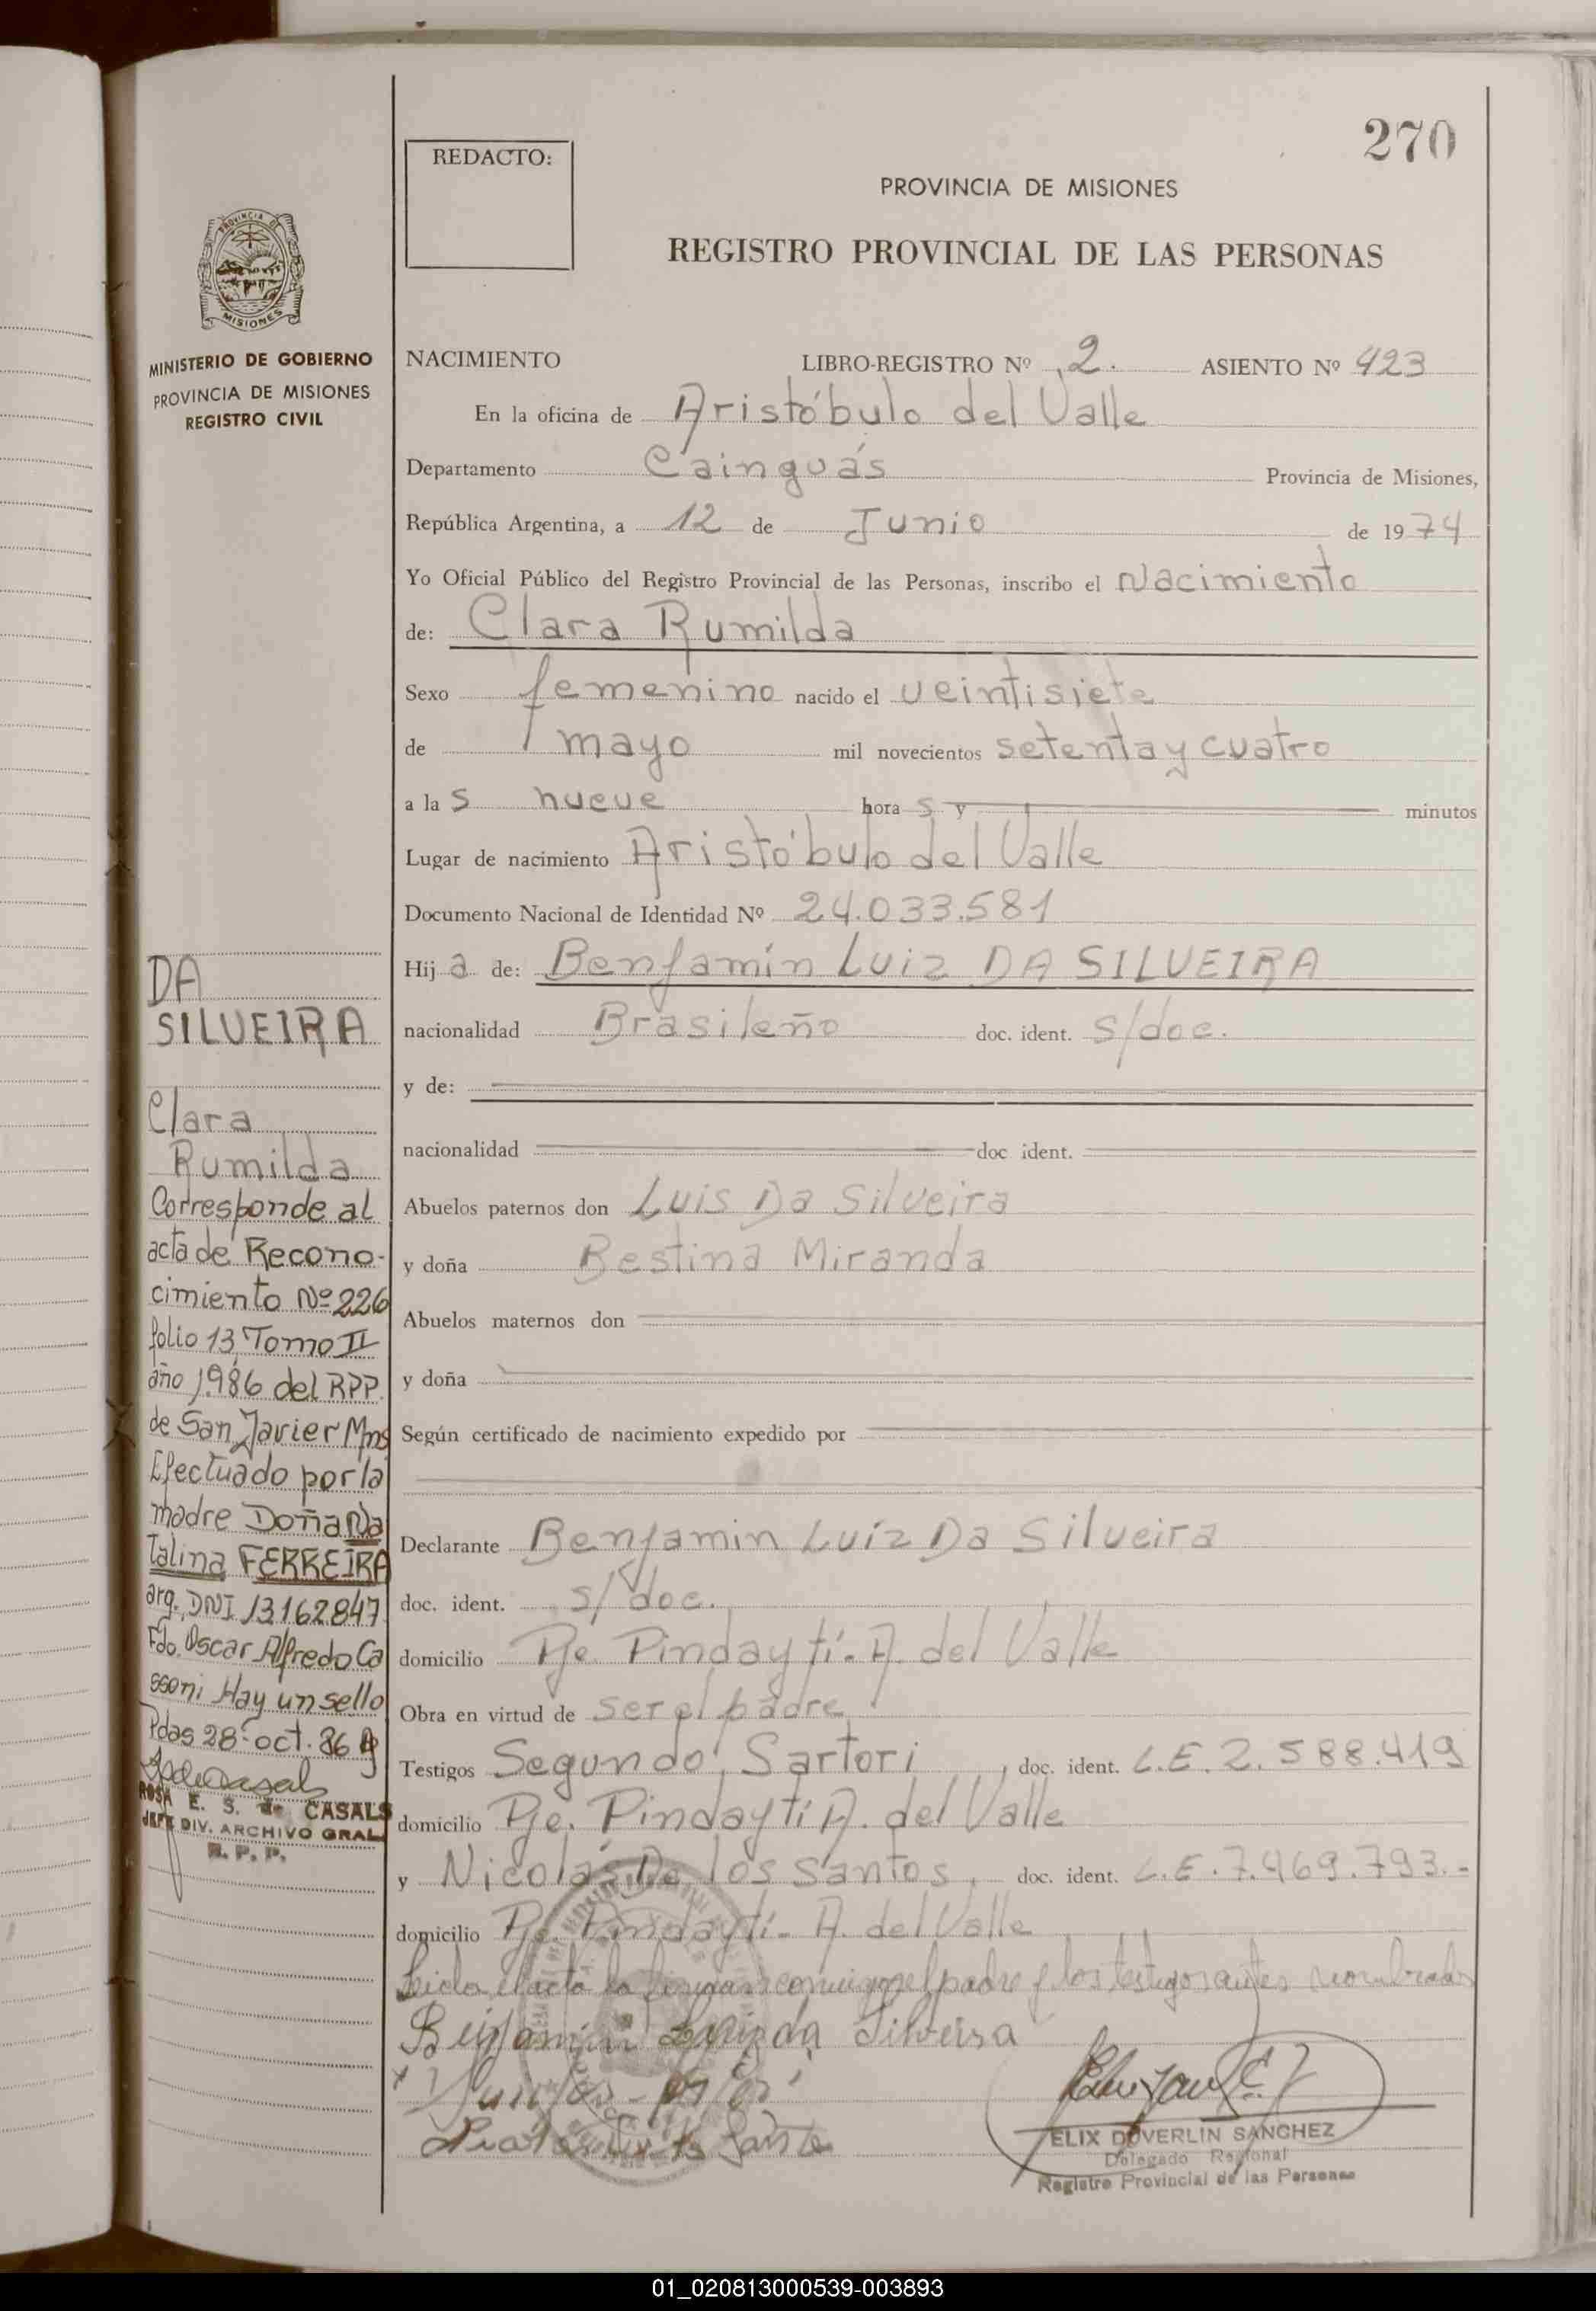 270
REDACTO:
PROVINCIA DE MISIONES
REGISTRO PROVINCIAL DE LAS PERSONAS
PROVINCIA DE
MISIONES
MINISTERIO DE GOBIERNO
PROVINCIA DE MISIONES
REGISTRO CIVIL
NACIMIENTO LIBRO-REGISTRO Nº 2. ASIENTO Nº 423
En la oficina de Aristóbulo del Valle
Departamento Cainguás Provincia de Misiones,
República Argentina, a 12 de Junio de 1974
Yo Oficial Público del Registro Provincial de las Personas, inscribo el Nacimiento
de: Clara Rumilda
Sexo femenino nacido el veintisiete
de mayo mil novecientos setenta y cuatro
a las nueve horas y minutos
Lugar de nacimiento Aristóbulo del Valle
Documento Nacional de Identidad Nº 24.033.581
Hija de: Benjamín Luiz DA SILVEIRA
nacionalidad Brasileño doc. ident. s/doc.
y de:
nacionalidad doc ident.
Abuelos paternos don Luis Da Silveira
y doña Bestina Miranda
Abuelos maternos don
y doña
Según certificado de nacimiento expedido por
Declarante Benjamin Luíz Da Silveira
doc. ident. s/doc.
domicilio Pje. Pindaytí. A. del Valle
Obra en virtud de ser el padre
Testigos Segundo Sartori, doc. ident. L.E. 2.588.419
domicilio Pje. Pindaytí A. del Valle
y Nicolás De los Santos, doc. ident. L.E. 7.469.793.-
domicilio Pje. Pindaytí- A. del Valle
Leida el acta la firman conmigo el padre y los testigos antes nombrados
Benjamin Luiz da Silveira
ELIX DUVERLIN SANCHEZ
Delegado Regional
Registro Provincial de las Personas
DA
SILVEIRA
Clara
Rumilda
Corresponde al
acta de Recono-
cimiento Nº 226
folio 13 Tomo II
año 1986 del RPP.
de San Javier Mns
Efectuado por la
madre Doña Na
talina FERREIRA
arg. DNI 13162847
Fdo. Oscar Alfredo Ca
ssoni Hay un sello
Pdas 28-oct. 86
ROSA E. S. de CASALS
JEFE DIV. ARCHIVO GRAL.
R. P. P.
01_020813000539-003893